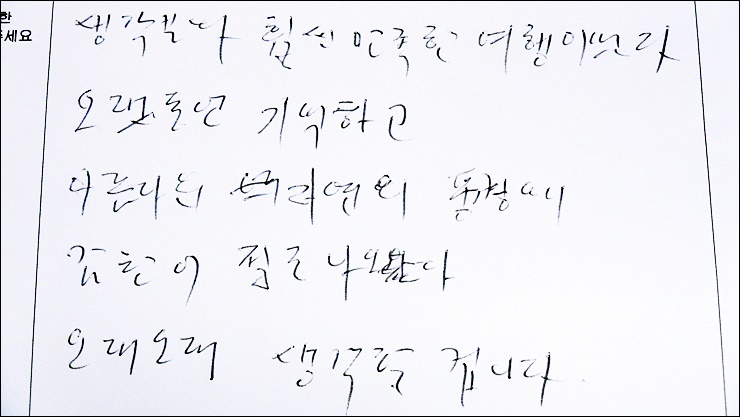 한
주세요
생각보다 훨씬 만족한 여행이었다
오랫동안 기억하고
아름다운
감탄이 절로 나왔다
오래오래 생각할 겁니다.